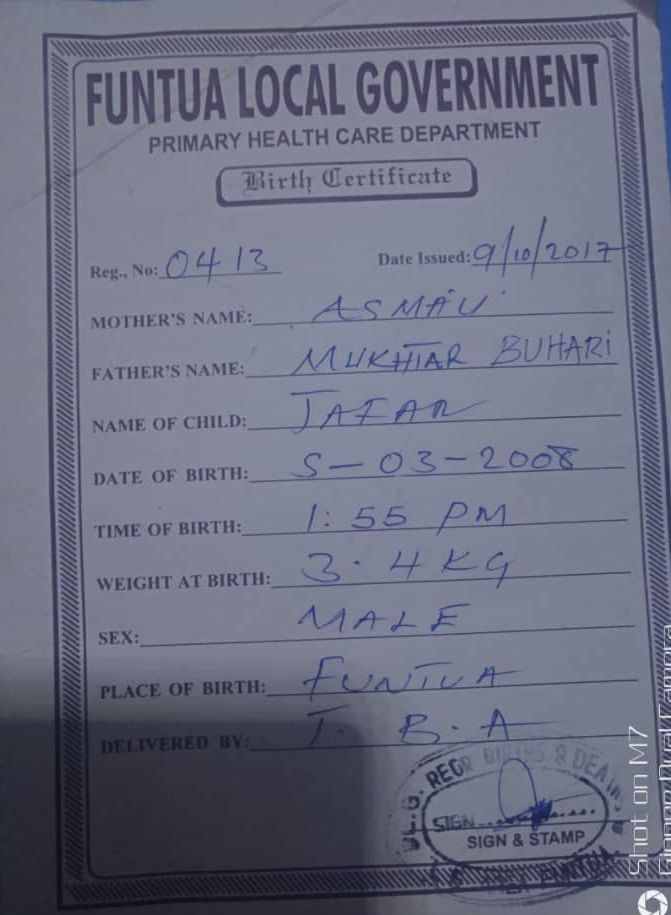 FUNTUA LOCAL GOVERNMENT
PRIMARY HEALTH CARE DEPARTMENT
Birth Certificate
Reg., No: 0413 Date Issued: 9/10/2017
MOTHER'S NAME: ASMA'U
FATHER'S NAME: MUKHTAR BUHARI
NAME OF CHILD: JAFAR
DATE OF BIRTH: 5-03-2008
TIME OF BIRTH: 1:55 PM
WEIGHT AT BIRTH: 3.4 KG
SEX: MALE
PLACE OF BIRTH: FUNTUA
DELIVERED BY: T.B.A
L.G. REGR BIRTHS & DEATHS
SIGN
SIGN & STAMP
FUNTUA
Shot on M7
Gionee Dual Camera